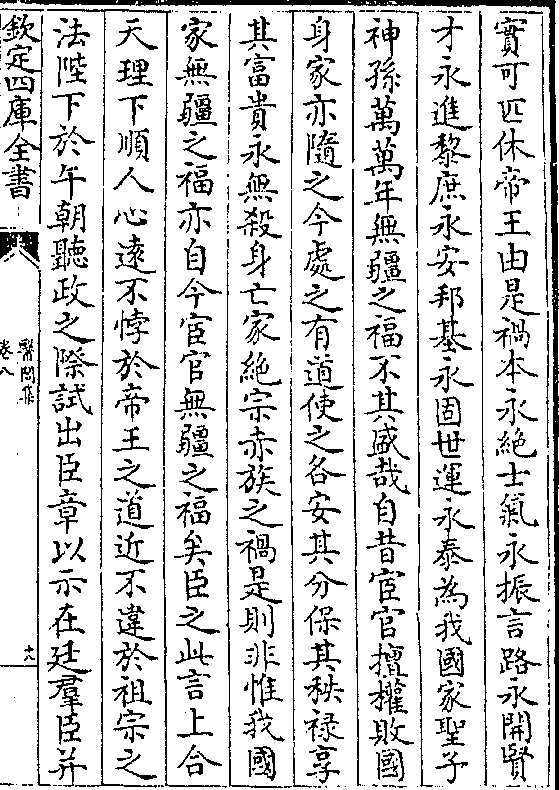 實可匹休帝王由是禍本永絕士氣永振言路永開賢
才永進黎庶永安邦基永固世運永泰為我國家聖子
神孫萬萬年無疆之福不其盛哉自昔宦官擅權敗國
身家亦隨之今處之有道使之各安其分保其秩祿享
其富貴永無殺身亡家絕宗赤族之禍是則非惟我國
家無疆之福亦自今宦官無疆之福矣臣之此言上合
天理下順人心遠不悖於帝王之道近不違於祖宗之
法陛下於午朝聽政之際試出臣章以示在廷羣臣并
欽定四庫全書
醫閭集
卷八
十八